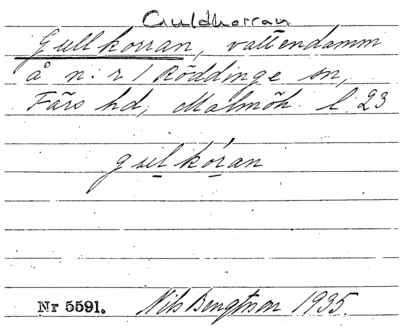 Guldkorran
Gullkorran, vattendamm
å n:r 1 Röddinge sn,
Färs hd, Malmöh. l. 23
gulkóran
Nr 5591. Nils Bengtson 1935.